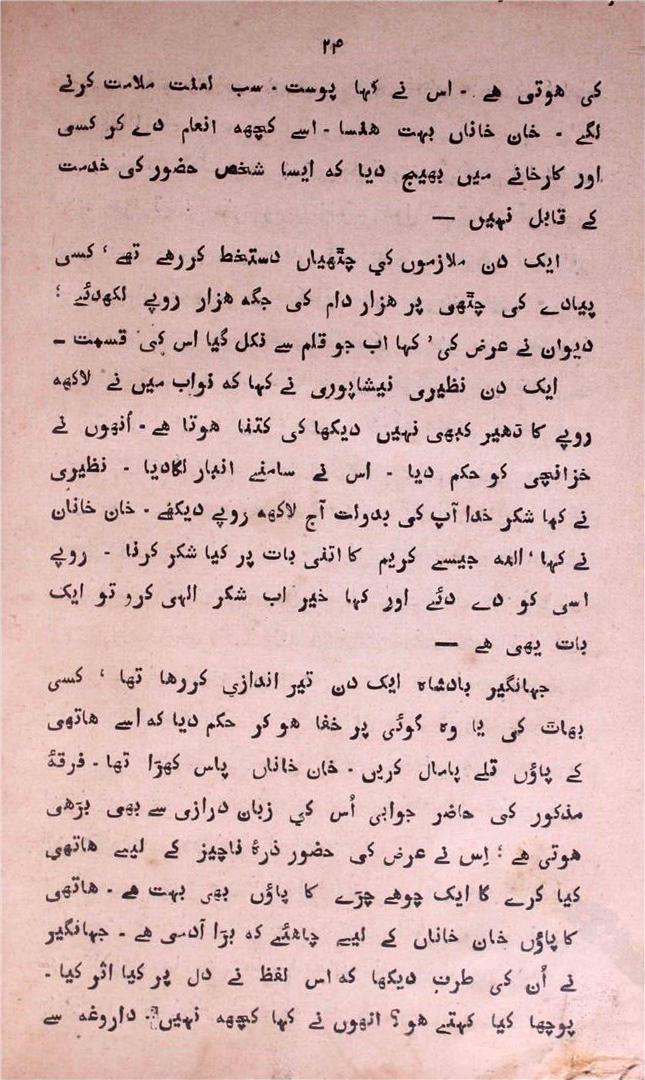 ۲۴
کی ہوتی ہے ۔ اس نے کہا پوست ۔ سب لعنت ملامت کرنے
لگے ۔ خان خاناں بہت ہنسا ۔ اسے کچھہ انعام دے کر کسی
اور کارخانے میں بھیج دیا کہ ایسا شخص حضور کی خدمت
کے قابل نہیں —
ایک دن ملازموں کی چٹھیاں دستخط کررہے تھے ' کسی
پیادے کی چٹھی پر ہزار دام کی جگہ ہزار روپے لکھدئے ؛
دیوان نے عرض کی ' کہا اب جو قلم سے نکل گیا اس کی قسمت —
ایک دن نظیری نیشاپوری نے کہا کہ نواب میں نے لاکھہ
روپے کا ڈھیر کبھی نہیں دیکھا کی کتنا ہوتا ہے ۔ اُنھوں نے
خزانچی کو حکم دیا ۔ اس نے سامنے انبار لگادیا ۔ نظیری
نے کہا شکر خدا آپ کی بدولت آج لاکھہ روپے دیکھے ۔ خان خاناں
نے کہا ' اللہ جیسے کریم کا اتنی بات پر کیا شکر کرنا ۔ روپے
اسی کو دے دئے اور کہا خیر اب شکر الہی کرو تو ایک
بات بھی ہے —
جہانگیر بادشاہ ایک دن تیر اندازی کررہا تھا ' کسی
بھاٹ کی یا وہ گوئی پر خفا ہو کر حکم دیا کہ اسے ہاتھی
کے پاؤں تلے پامال کریں ۔ خان خاناں پاس کھڑا تھا ۔ فرقۂ
مذکور کی حاضر جوابی اُس کی زبان درازی سے بھی بڑھی
ہوتی ہے ؛ اِس نے عرض کی حضور ذرۂ ناچیز کے لیے ہاتھی
کیا کرے گا ایک چوہے چڑے کا پاؤں بھی بہت ہے ۔ ہاتھی
کا پاؤں خان خاناں کے لیے چاہئیے کہ بڑا آدمی ہے ۔ جہانگیر
نے اُن کی طرف دیکھا کہ اس لفظ نے دل پر کیا اثر کیا ۔
پوچھا کیا کہتے ہو ؟ انھوں نے کہا کچھہ نہیں ۔ داروغہ سے